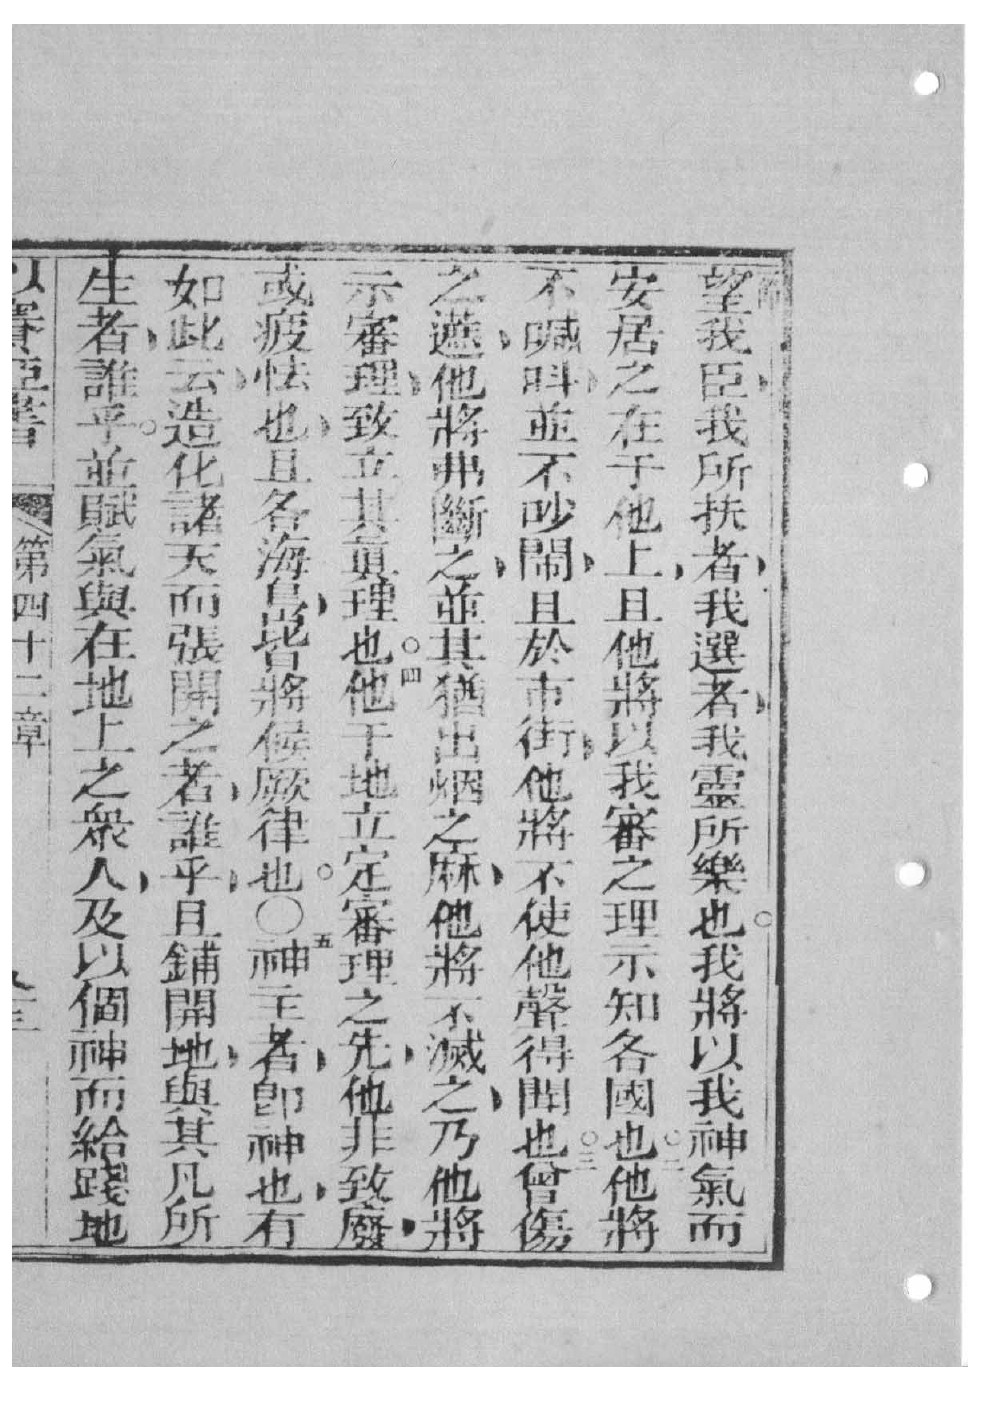 望我臣我所扶者我選者我靈所樂也我將以我神氣而
安居之在于他上且他將以我審之理示知各國也○二他將
不喊呌並不吵鬧且於市街他將不使他聲得聞也○三曾傷
之葦他將弗斷之並其猶出烟之麻他將不滅之乃他將
示審理致立其眞理也○四他于地立定審理之先他非致廢
或疲怯也且各海島皆將候厥律也○五神主者卽神也有
如此云造化諸天而張開之者誰乎且鋪開地與其凡所
生者誰乎並賦氣與在地上之衆人及以個神而給踐地
以賽亞書 第四十二章